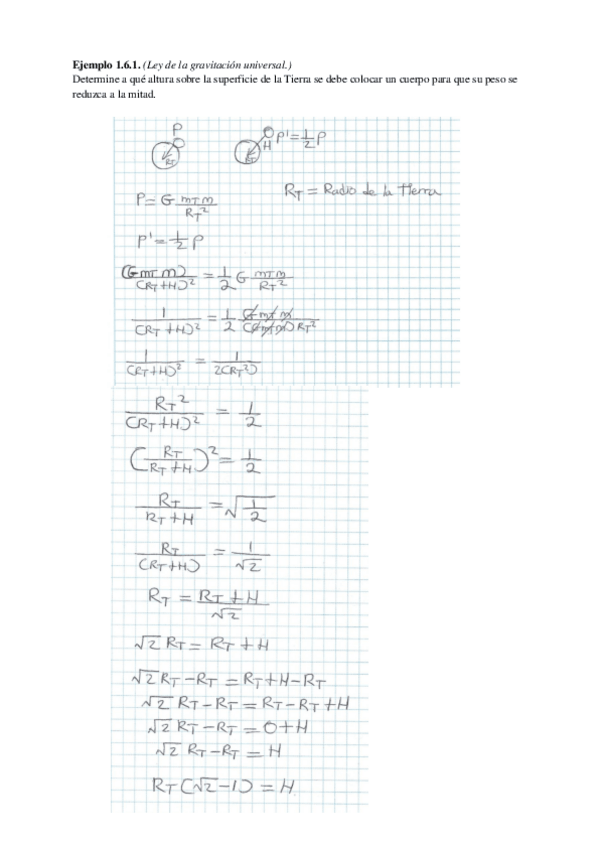 Ejemplo 1.6.1. (Ley de la gravitación universal.)
Determine a qué altura sobre la superficie de la Tierra se debe colocar un cuerpo para que su peso se
reduzca a la mitad.
P
RT
P' = 1/2 P
H
RT
RT = Radio de la Tierra
P = G mT m / RT²
P' = 1/2 P
(G mT m) / (RT + H)² = 1/2 G mT m / RT²
1 / (RT + H)² = 1/2 G mT m / (G mT m) RT²
1 / (RT + H)² = 1 / 2(RT²)
RT² / (RT + H)² = 1/2
(RT / RT + H)² = 1/2
RT / RT + H = √1/2
RT / (RT + H) = 1/√2
RT = RT + H / √2
√2 RT = RT + H
√2 RT - RT = RT + H - RT
√2 RT - RT = RT - RT + H
√2 RT - RT = 0 + H
√2 RT - RT = H
RT (√2 - 1) = H